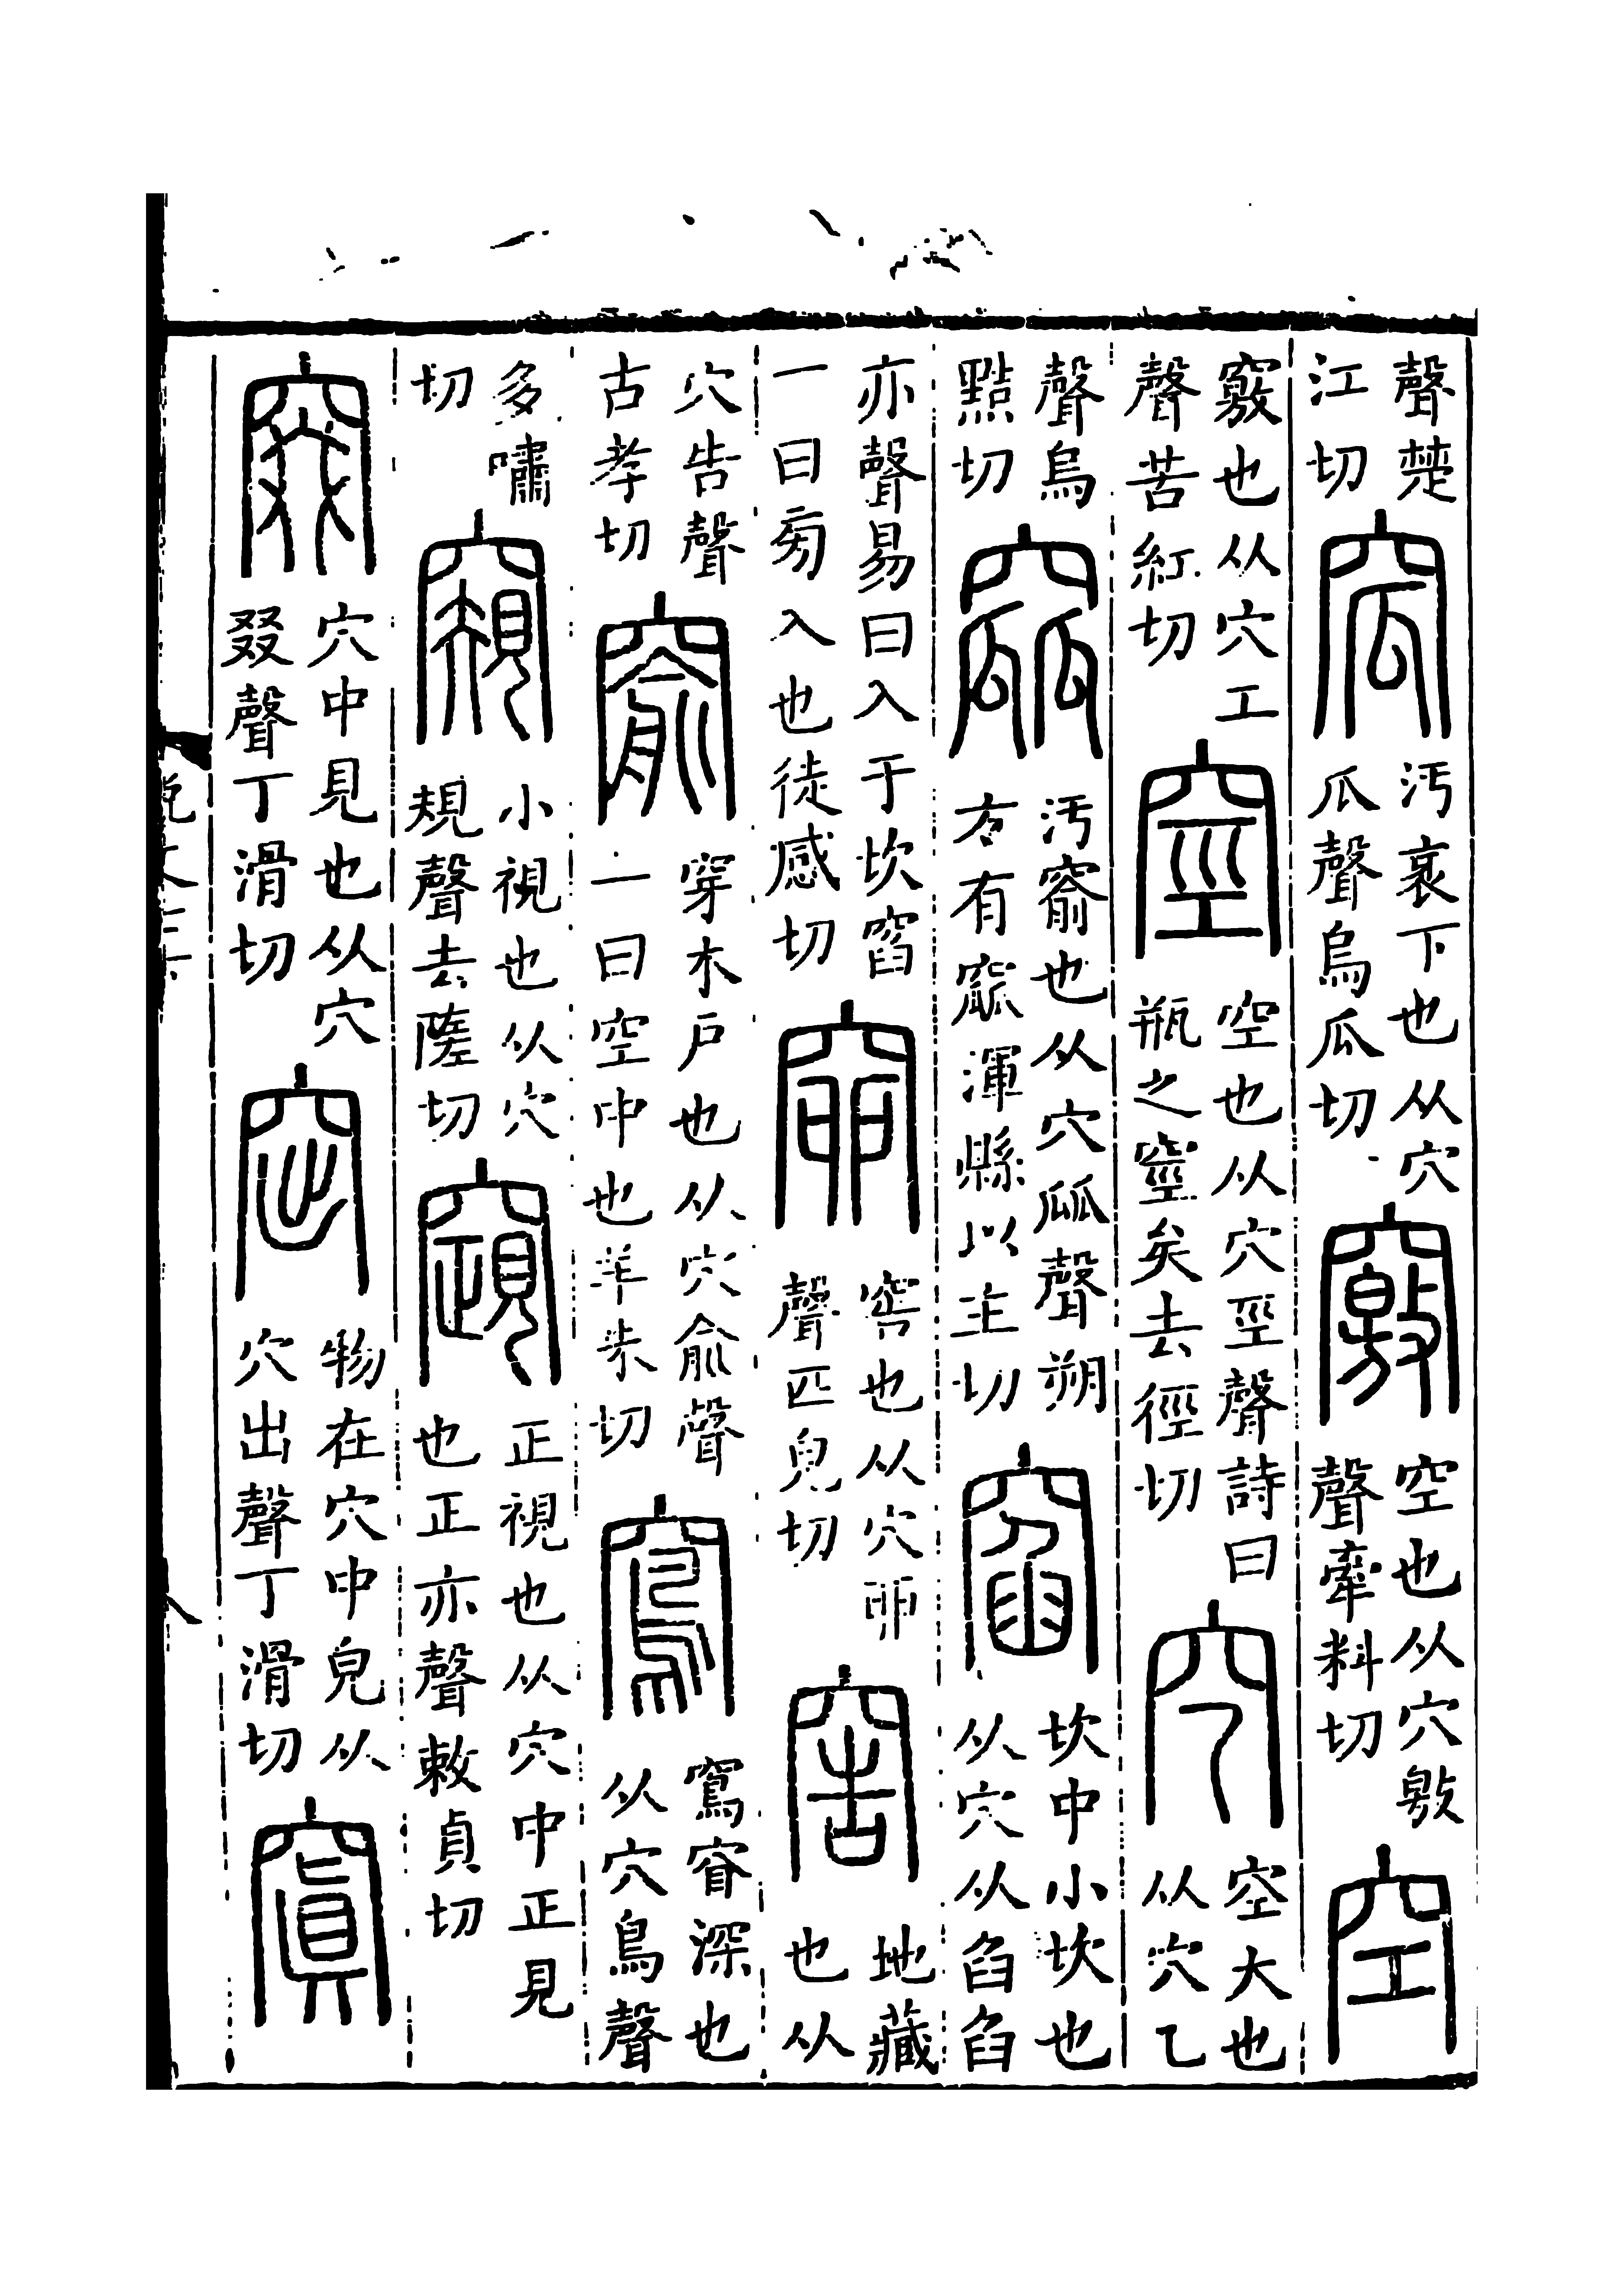 聲楚江切窊汚衺下也从穴瓜聲烏瓜切竅空也从穴敫聲牽料切空
竅也从穴工聲苦紅切䆪空也从穴巠聲詩曰瓶之䆪矣去徑切穵空大也从穴乙
聲烏黠切窳汚窬也从穴㼌聲朔方有窳渾縣以主切窞坎中小坎也从穴从臽臽
亦聲易曰入于坎窞一曰旁入也徒感切窌窖也从穴丣聲匹皃切窖地藏也从
穴告聲古孝切窬穿木戶也从穴俞聲一曰空中也羊朱切窵窵窅深也从穴鳥聲
多嘯切窺小視也从穴規聲去隓切䆸正視也从穴中正見也正亦聲敕貞切
窡穴中見也从穴叕聲丁滑切窋物在穴中皃从穴出聲丁滑切窴